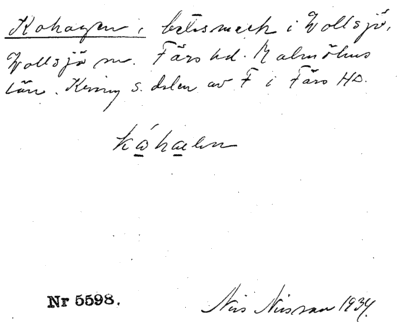 Kohagen, betesmark i Vollsjö,
Vollsjö sn. Färs hd. Malmöhus
län. Kring s. delen av F i Färs HD.
kóhaen
Nr 5598.
Nils Nilsson 1934.